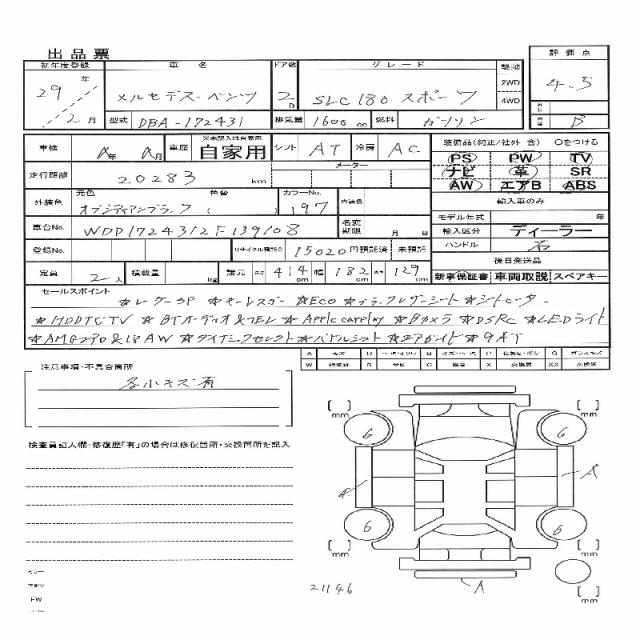 出品票
初年度登録 車名 ドア数 グレード 駆動 評価点
29年 2月 メルセデス・ベンツ 2D SLC 180 スポーツ 2WD 4WD 4.5
型式 DBA-172431 排気量 1600 cc 燃料 ガソリン B
車検 年 月 車歴 ※未記入は自家用 自家用 シフト AT 冷房 AC 装備品(純正/社外 含) 〇をつける
走行距離 20283 km メーター PS PW TV
ナビ 革 SR
AW エアB ABS
外装色 元色 オブシディアンブラック 色替 ( ) カラーNo. 197 内装色 輸入車のみ
車台No. WDD1724312F139108 名変期限 月 日 モデル年式 年
輸入区分 ディーラー
登録No. リサイクル預託金 15020 円預託済 未預託 ハンドル 右
定員 2人 積載量 kg 諸元 長さ 414 幅 182 高さ 129 後日発送品
新車保証書 車両取説 スペアキー
セールスポイント
☆レーダーSP ☆キーレスゴー ☆ECO ☆ブラックレザーシート ☆シートヒーター
☆HDDナビTV ☆BTオーディオ&TEL ☆Apple carplay ☆Bカメラ ☆DSRC ☆LEDライト
☆AMGエアロ&18AW ☆ダイナミックセレクト ☆パドルシフト ☆エアガイド ☆9AT
A キズ U B P G ガラスキズ
W S C X 交換要 XX 交換済
注意事項・不具合箇所
多小キズ有
検査員記入欄・修復歴「有」の場合は修復箇所・交換箇所を記入
[ ] mm [ ] mm
6 6
A A
6 6
[ ] mm [ ] mm
A
21146
mm